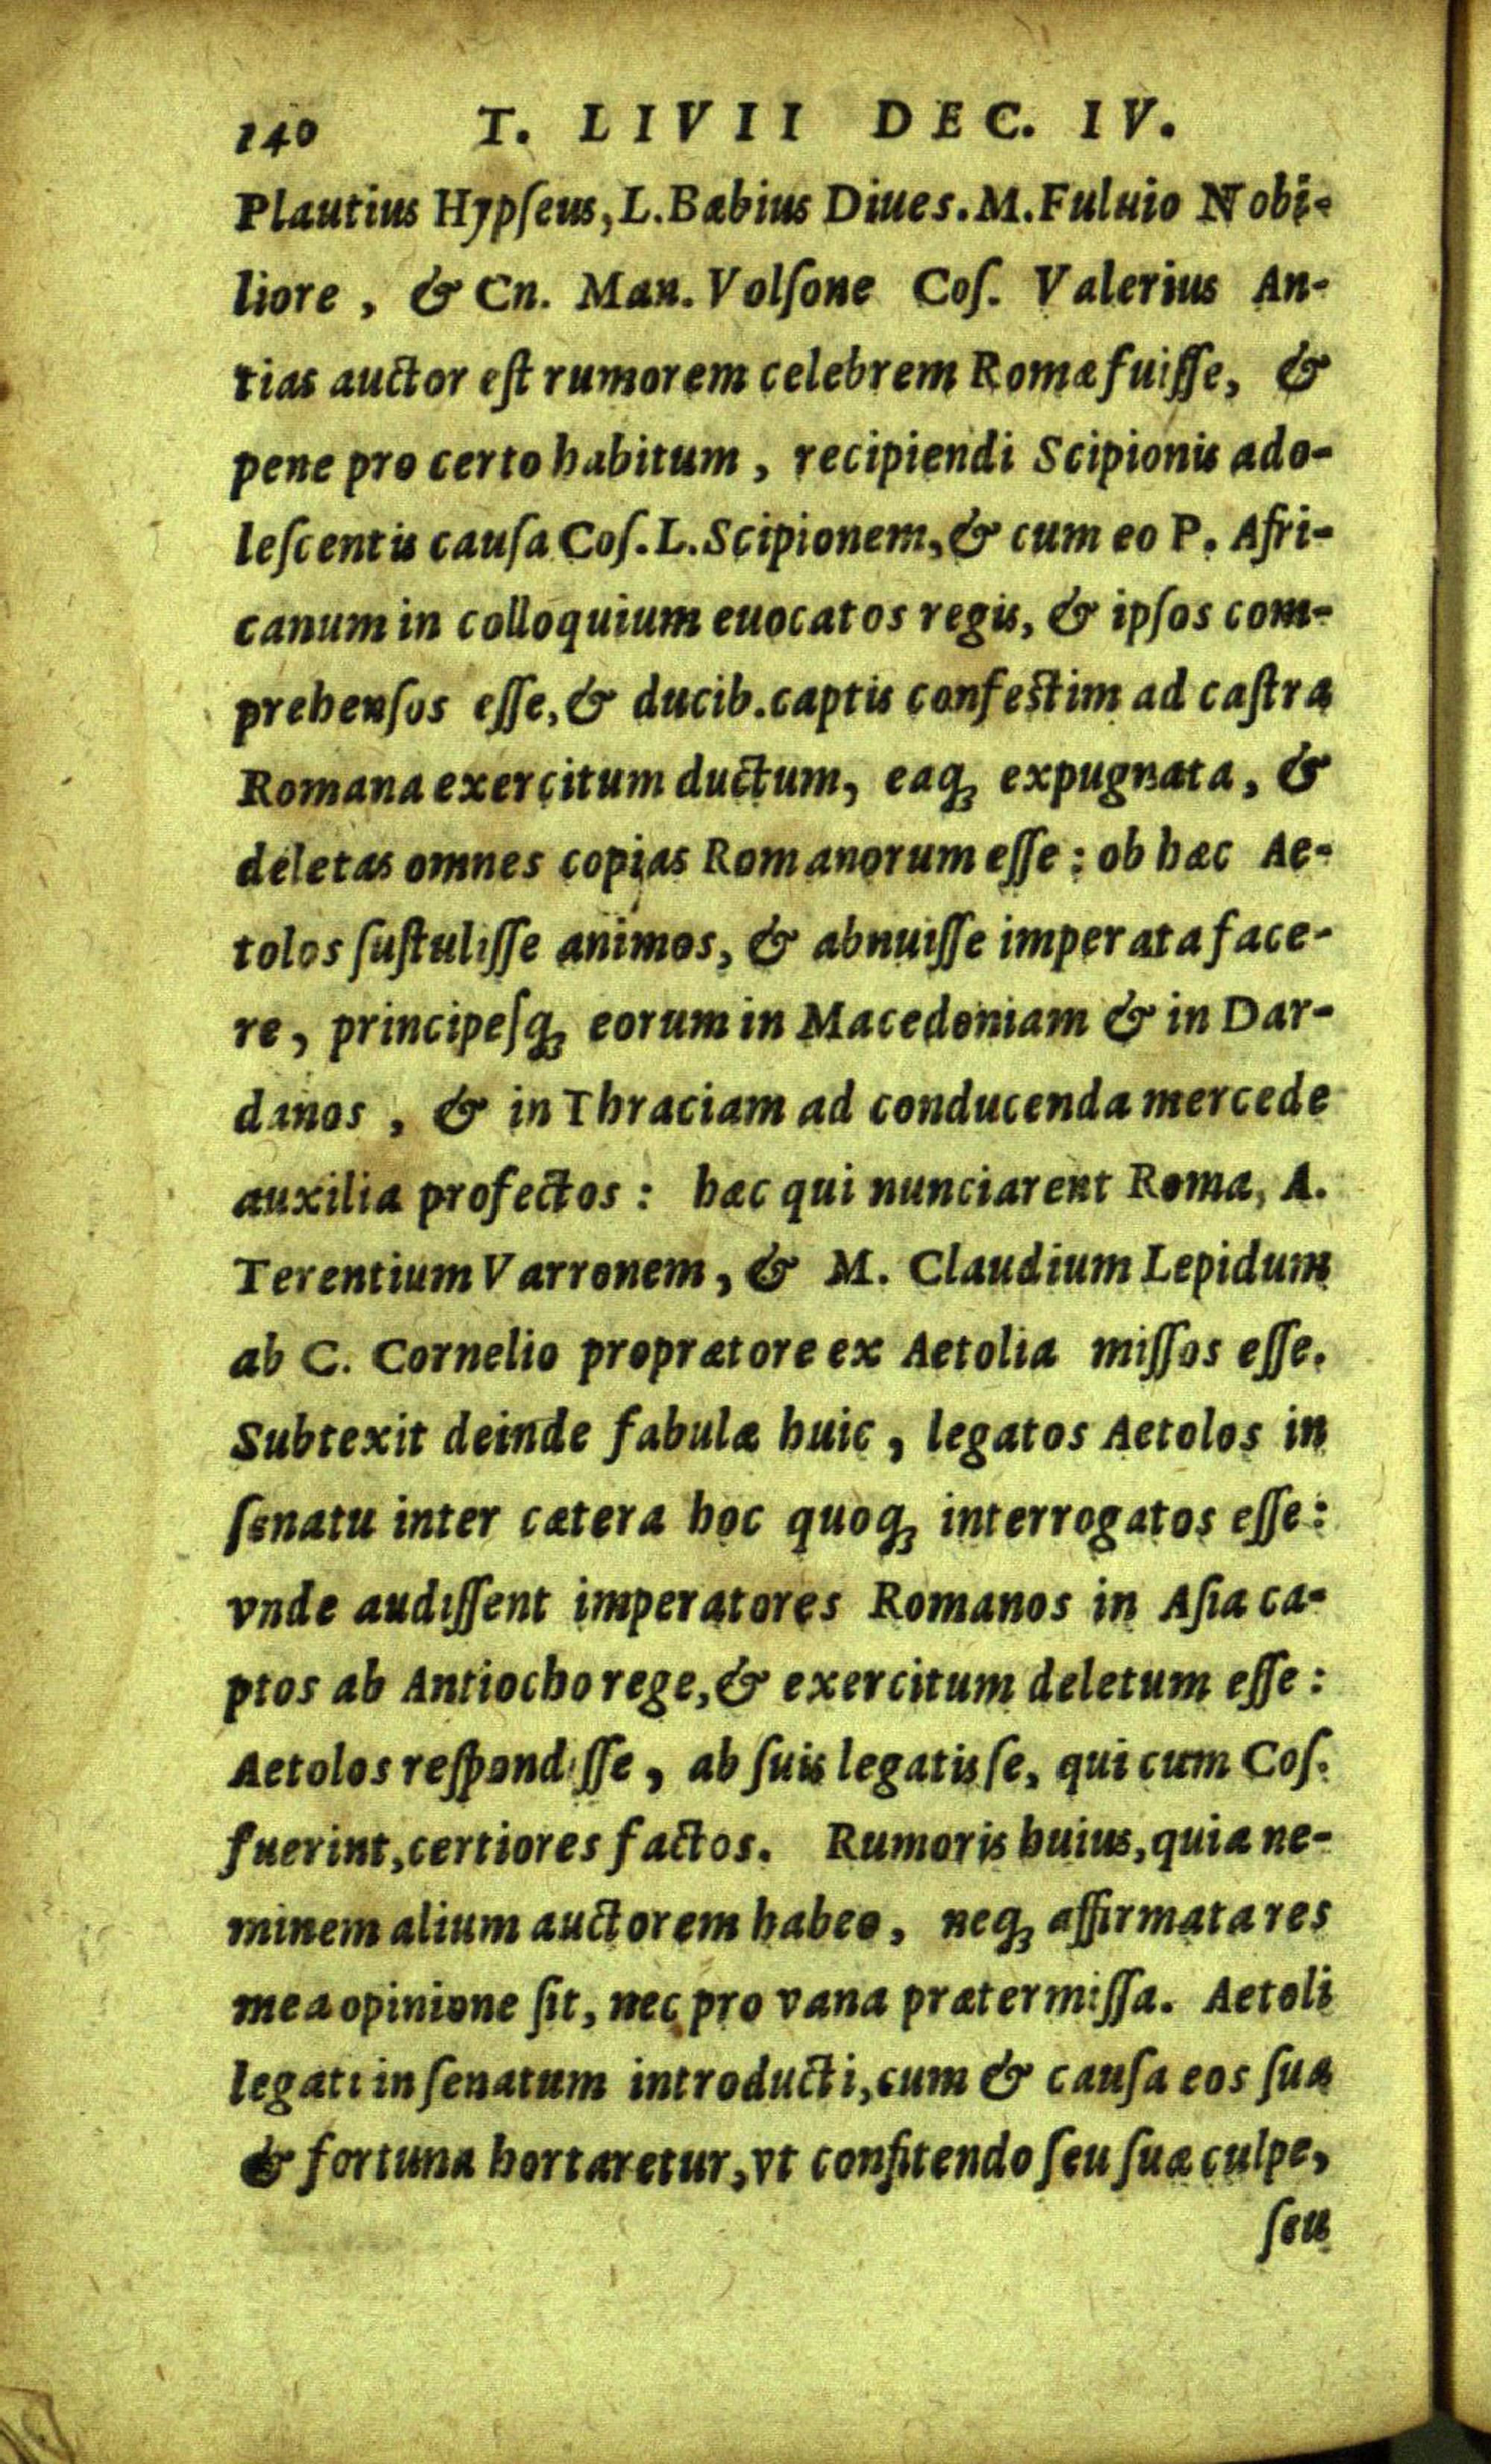 140 T. LIVII DEC. IV.
Plautius Hypſeus, L. Bæbius Diues. M. Fuluio Nobi-
liore, & Cn. Man. Volſone Coſ. Valerius An-
tias auctor eſt rumorem celebrem Romæ fuiſſe, &
pene pro certo habitum, recipiendi Scipionis ado-
leſcentis cauſa Coſ. L. Scipionem, & cum eo P. Afri-
canum in colloquium euocatos regis, & ipſos com-
prehenſos eſſe, & ducib. captis confeſtim ad caſtra
Romana exercitum ductum, eaq; expugnata, &
deletas omnes copias Romanorum eſſe: ob hæc Ae-
tolos ſuſtuliſſe animos, & abnuiſſe imperata face-
re, principeſq; eorum in Macedoniam & in Dar-
danos, & in Thraciam ad conducenda mercede
auxilia profectos: hæc qui nunciarent Romæ, A.
Terentium Varronem, & M. Claudium Lepidum
ab C. Cornelio proprætore ex Aetolia miſſos eſſe.
Subtexit deinde fabulæ huic, legatos Aetolos in
ſenatu inter cætera hoc quoq; interrogatos eſſe:
vnde audiſſent imperatores Romanos in Aſia ca-
ptos ab Antiocho rege, & exercitum deletum eſſe:
Aetolos reſpondiſſe, ab ſuis legatis ſe, qui cum Coſ.
fuerint, certiores factos. Rumoris huius, quia ne-
minem alium auctorem habeo, neq; affirmata res
mea opinione ſit, nec pro vana prætermiſſa. Aetoli
legati in ſenatum introducti, cum & cauſa eos ſua
& fortuna hortaretur, vt confitendo ſeu ſuæ culpe,
ſeu